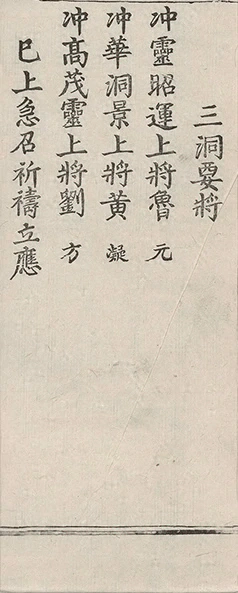 三洞要將
冲靈昭運上將魯元
冲華洞景上將黄凝
冲髙茂靈上將劉方
巳上急召祈禱立應